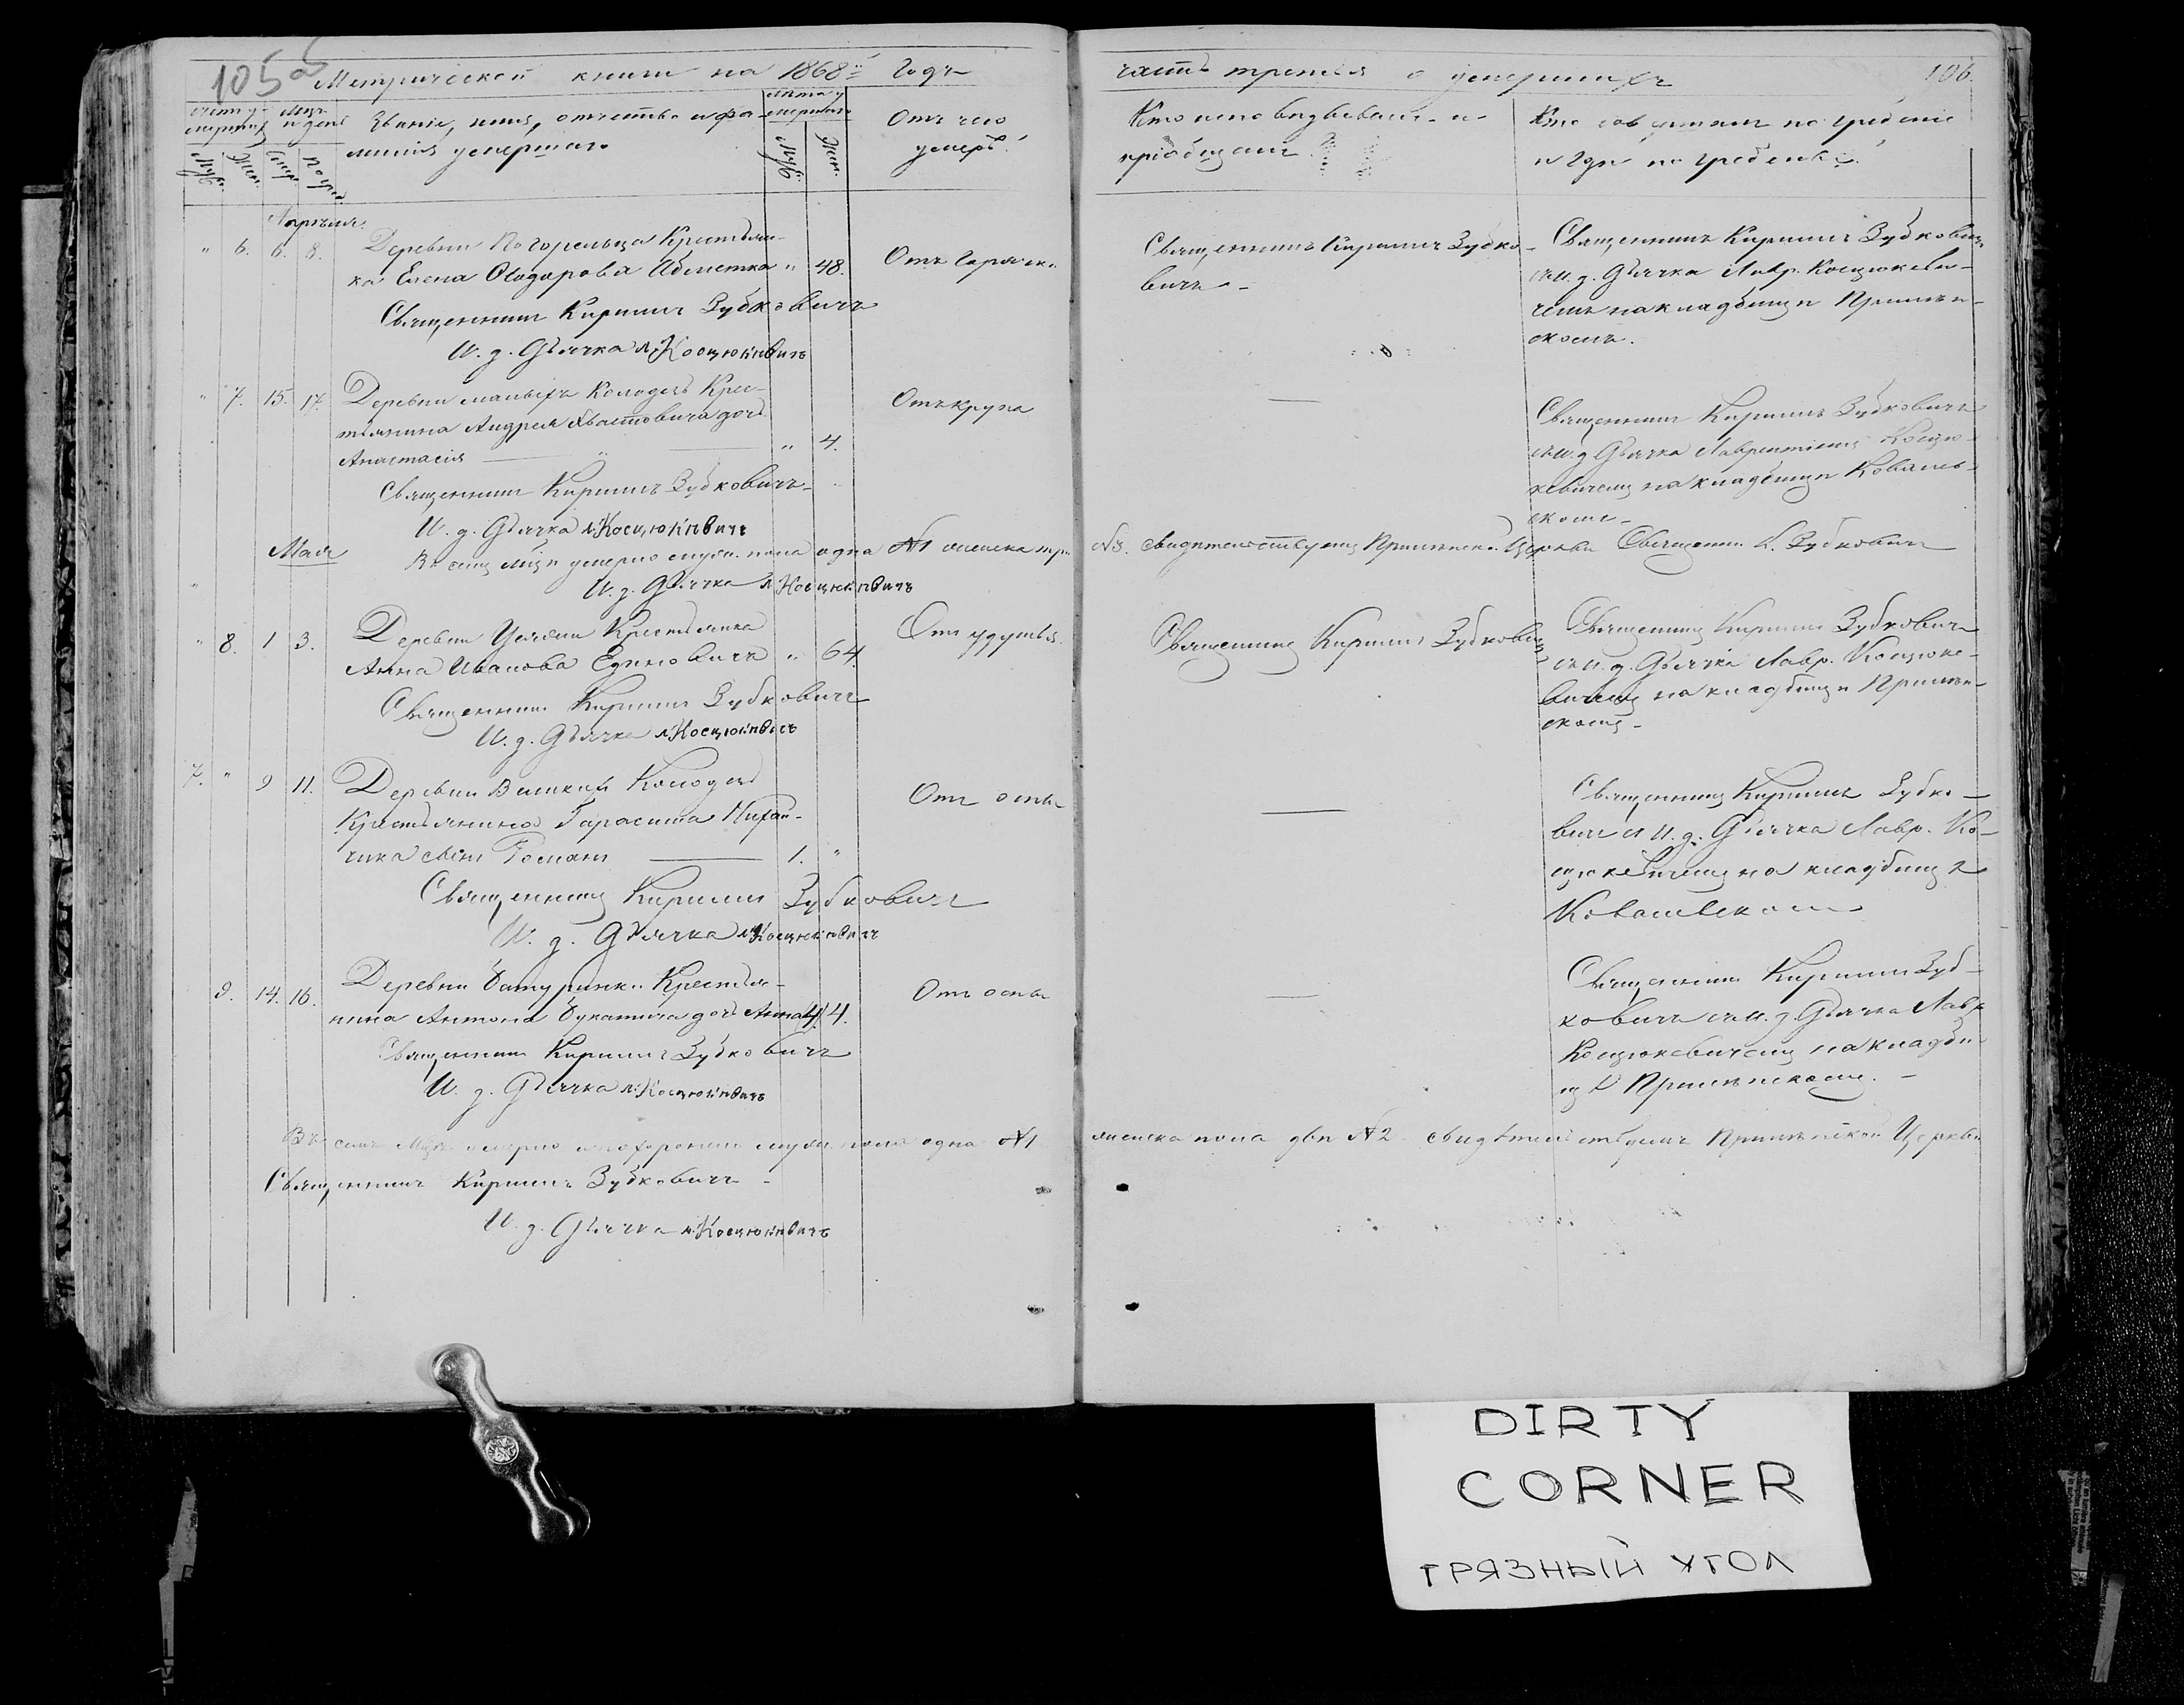 105 об
Метрической книги на 1868й Годъ
часть третья о умершихъ
106.
Званіе, имя, отчество и фа-
милія умершаго
Лѣта умершаго
Отъ чего
умеръ.
Муж. Жен.
Кто исповѣдывалъ и
пріобщалъ
Кто совершалъ погребеніе
и гдѣ погребены.
Апрѣля.
" 6. 6. 8. Деревни Погорельца Крестьян-
ка Елена Ѳеодорова " 48. Отъ горячк.
Священникъ Кириллъ Зубковичъ
И. д. Дьячка Л. Косцюкѣвичъ
Священникъ Кириллъ Зубко-
вичъ -
Священникъ Кириллъ Зубковичъ
съ и. д. Дьячка Лавр. Косцюкеви-
чемъ на кладбищѣ Прилѣп-
скомъ.
" 7. 15. 17. Деревни малыхъ Колодезь Крес-
тьянина Андрея Хвастовича дочь
Анастасія " " 4. Отъ крупа
Священникъ Кириллъ Зубковичъ
И. д. Дьячка Л. Косцюкѣвичъ
Священникъ Кириллъ Зубковичъ
съ и. д. Дьячка Лаврентіемъ Косцю-
кевичемъ на кладбищѣ Коваль-
скомъ -
В семъ мцѣ умерло муж. пола одна №1 женска три №3. свидѣтельствуемъ Прилѣпской Церкви Священник К. Зубковичъ
И. д. Дьячка Л. Косцюкѣвичъ
Мая
" 8. 1 3. Деревни Уляхи Крестьянка
Анна Иванова Единовичъ " 64. Отъ удушья.
Священникъ Кириллъ Зубковичъ
И. д. Дьячка Л. Косцюкѣвичъ
Священникъ Кириллъ Зубковичъ
Священникъ Кириллъ Зубковичъ
съ и. д. Дьячка Лавр. Косцюке-
вичемъ на кладбищѣ Прилѣп-
скомъ -
7. " 9 11. Деревни Великій Колодезь
Крестьянина Гарасима
сынъ Романъ 1. " Отъ оспы
Священникъ Кириллъ Зубковичъ
И. д. Дьячка Л. Косцюкѣвичъ
Священникъ Кириллъ Зубко-
вичъ съ И. д. Дьячка Лавр. Ко-
сцюкевичемъ на кладбищѣ
Ковальскомъ
9. 14. 16. Деревни Батуринки Крестья-
нина Антона дочь Анна 4. Отъ оспы
Священникъ Кириллъ Зубковичъ
И. д. Дьячка Л. Косцюкѣвичъ
Священникъ Кириллъ Зуб-
ковичъ съ и. д. Дьячка Лавр
Косцюкевичемъ на кладби-
щѣ Прилѣпскомъ. -
Въ семъ Мцѣ умерло и похоронено муж. пола одна №1 женска пола двѣ №2 свидѣтельствуемъ Прилѣпской Церкви
Священникъ Кириллъ Зубковичъ -
И. д. Дьячка Л. Косцюкѣвичъ
DIRTY
CORNER
ГРЯЗНЫЙ УГОЛ